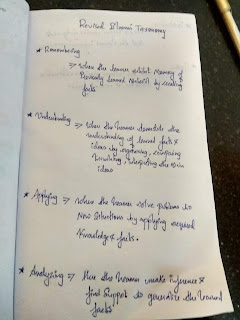 Revised Bloom's Taxonomy
* Remembering
⇒ When the learner exhibit Memory of
Previously learned Material by recalling
facts
* Understanding ⇒ When the learner demonstrate the
understanding of learned facts &
ideas by organising, comparing
translating, interpreting the main
ideas
* Applying ⇒ When the learner solve problems to
New Situations by applying acquired
Knowledge & facts.
* Analyzing ⇒ Here the learner make inference &
find Support to generalize the learned
facts